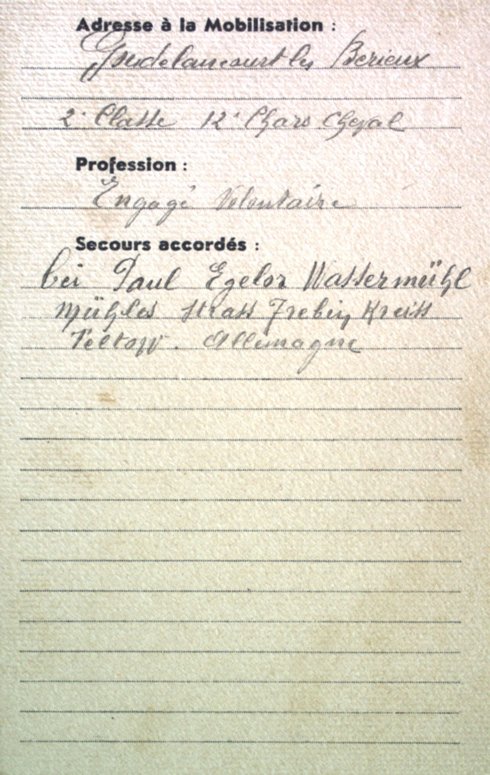 Adresse à la Mobilisation :
Gudelancourt les Berieux
2e Classe 12e Chars Cheval
Profession :
Engagé Volontaire
Secours accordés :
bei Paul Egelor Wassermühl
Mühles Strass Trebin Kreiss
Teltow. Allemagne